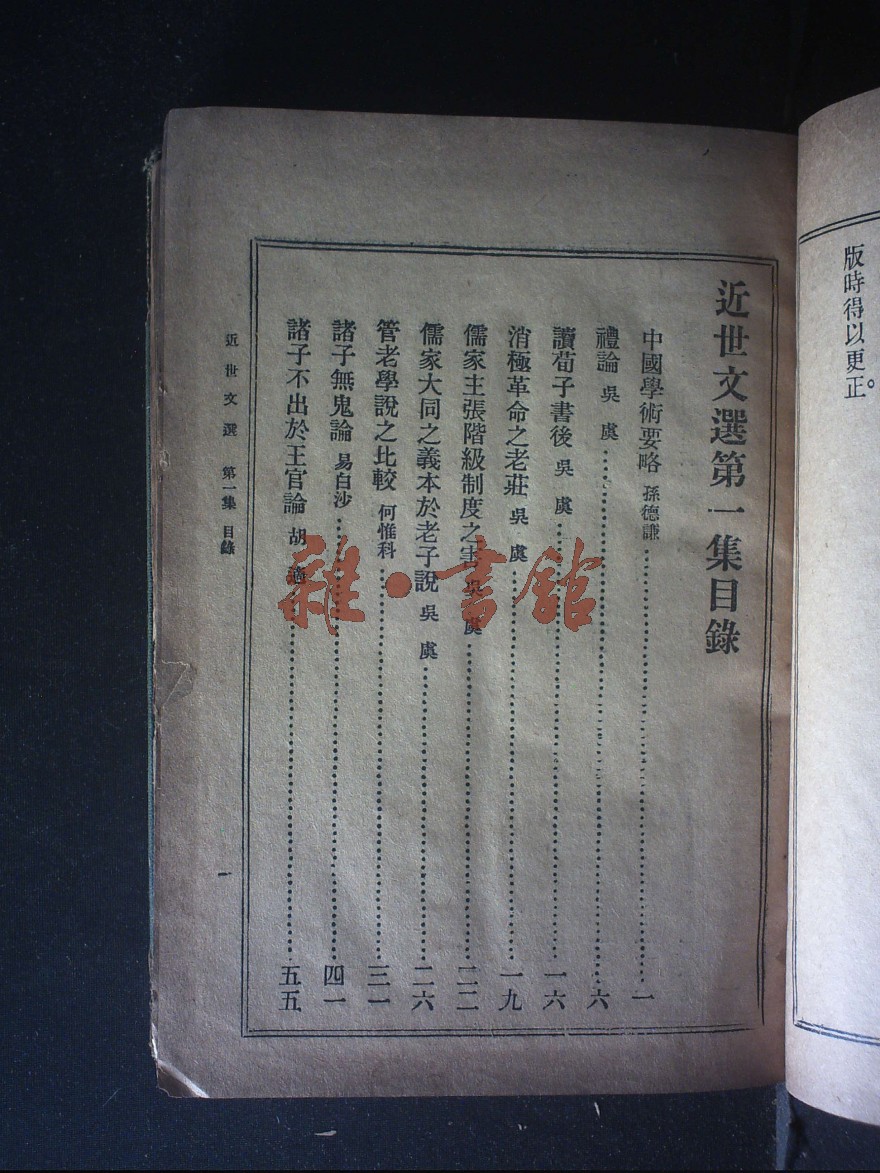 版時得以更正。
近世文選第一集目錄
中國學術要略 孫德謙……一
禮論 吳虞……六
讀荀子書後 吳虞……一六
消極革命之老莊 吳虞……一九
儒家主張階級制度之害 吳虞……二二
儒家大同之義本於老子說 吳虞……二六
管老學說之比較 何惟科……三一
諸子無鬼論 易白沙……四一
諸子不出於王官論 胡適……五五
近世文選 第一集 目錄
一
雜·書館